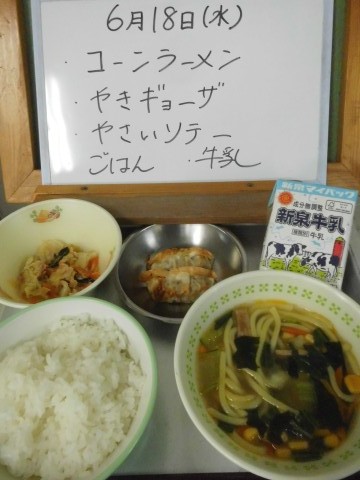 6月18日(水)
・コーンラーメン
・やきギョーザ
・やさいソテー
ごはん ・牛乳
新泉マイパック
成分無調整
新泉牛乳
牛乳